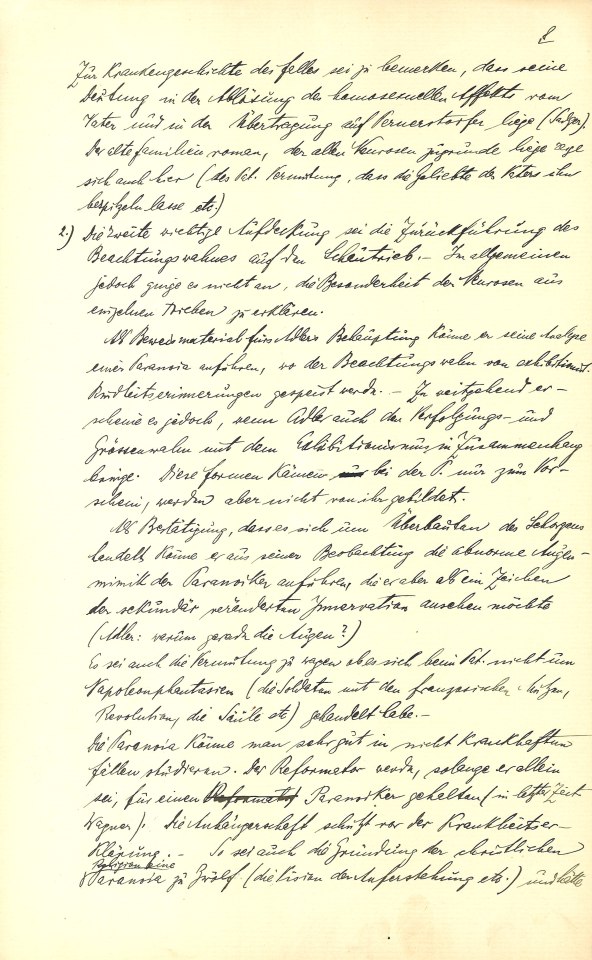 8
Zur Krankengeschichte des Falles sei zu bemerken, dass seine
Deutung in der Ablösung des homosexuellen Affekts vom
Vater und in der Übertragung auf Pernerstorfer liege (Sadger).
Der alte Familienroman, der allen Neurosen zugrunde liege zeige
sich auch hier (des Pat. Vermutung, dass die Geliebte des Vaters ihn
bespitzeln lasse etc.)
2.) Die zweite wichtige Aufdeckung sei die Zurückführung des
Beachtungswahnes auf den Schautrieb. – Im allgemeinen
jedoch ginge es nicht an, die Besonderheit der Neurosen aus
einzelnen Trieben zu erklären.
Als Beweismaterial fürs Adlers Behauptung könne er seine Analyse
einer Paranoia anführen, wo der Beachtungswahn von exhibitionist.
Kindheitserinnerungen gespeist werde. – Zu weitgehend er-
scheine es jedoch, wenn Adler auch den Verfolgungs- und
Grössenwahn mit dem Exhibitionismus in Zusammenhang
bringe. Diese Formen kämen nur bei der P. nur zum Vor-
schein, werden aber nicht von ihr gebildet.
Als Bestätigung, dass es sich um Überbauten des Sehorgans
handelt, könne er aus seiner Beobachtung die abnorme Augen-
mimik der Paranoiker anführen, die er aber als ein Zeichen
der sekundär veränderten Innervation ansehen möchte
(Adler: warum gerade die Augen?)
Es sei auch die Vermutung zu wagen ob es sich beim Pat. nicht um
Napoleonphantasien (die Soldaten mit den französischen Mützen,
Revolution, die Säule etc) gehandelt habe. –
Die Paranoia könne man sehr gut in nicht krankhaften
Fällen studieren. Der Reformator werde, solange er allein
sei, für einen Reformator Paranoiker gehalten (in letzter Zeit
Wagner). Die Anhängerschaft schützt vor der Krankheitser-
klärung. – So sei auch die Gründung der christlichen
Religion eine
Paranoia zu Zwölf (die Vision der Auferstehung etc.) und hätte